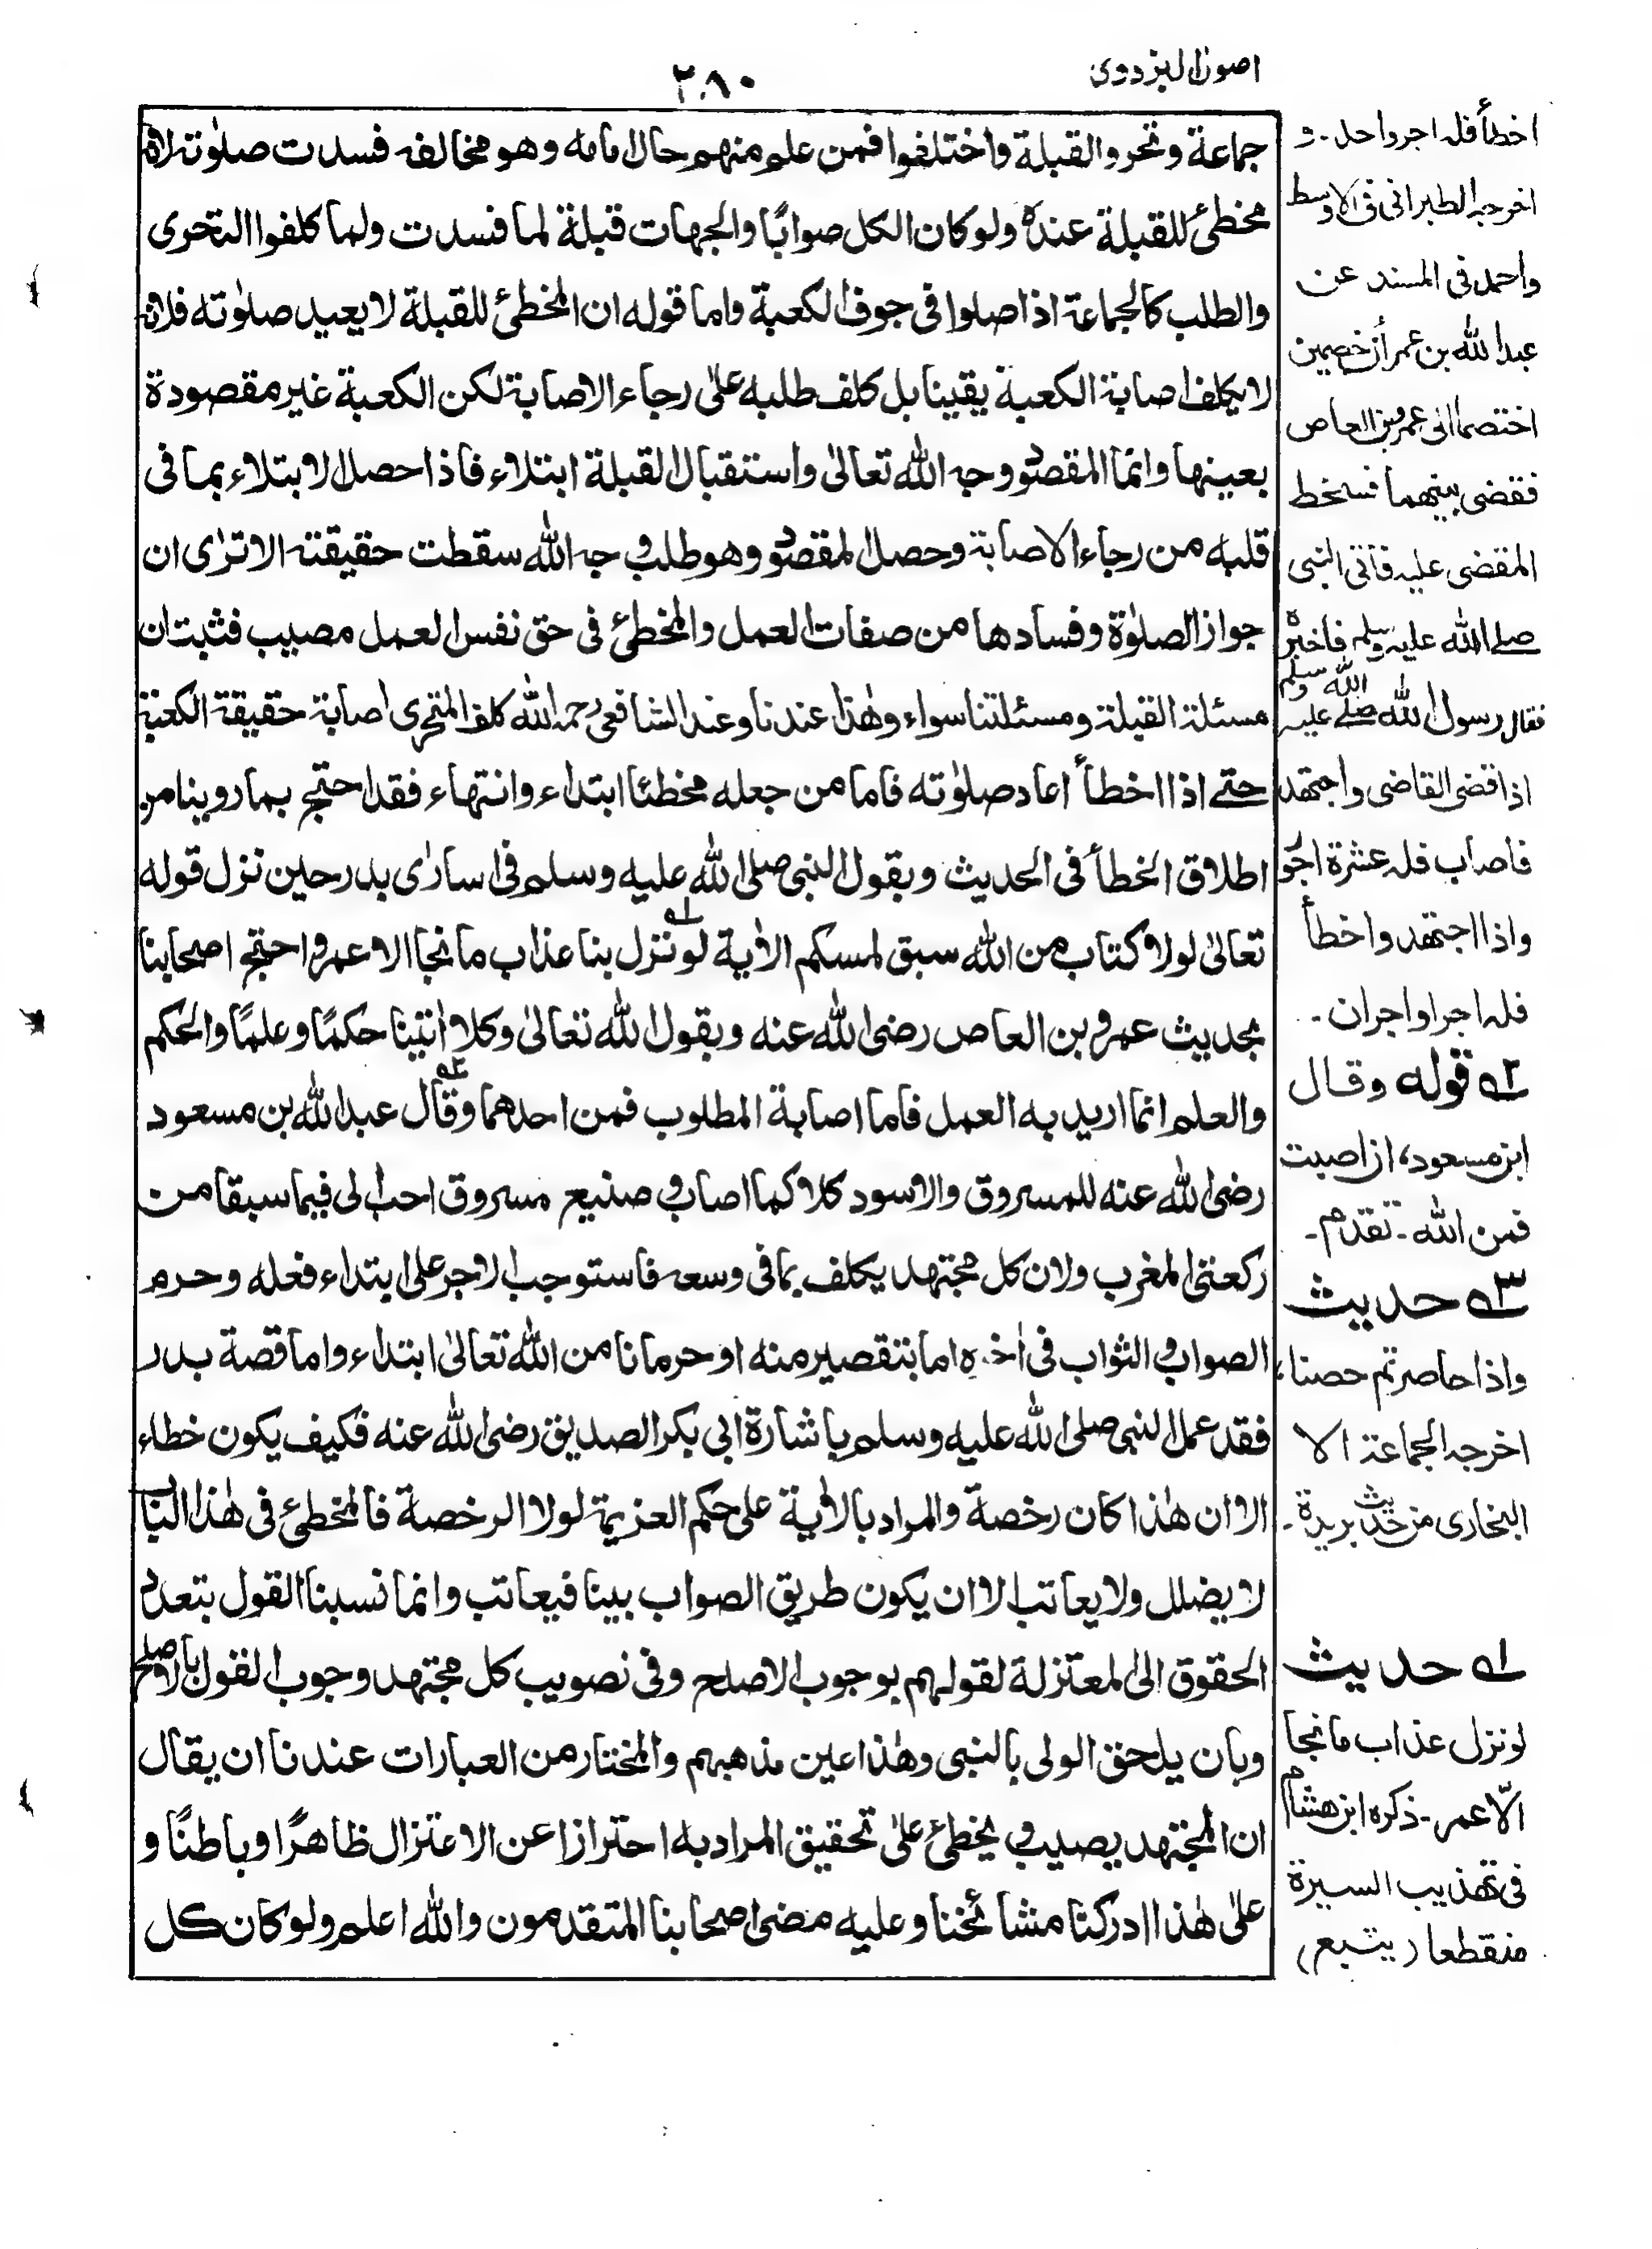 اصول البزدوی
۲۸۰
جماعة وتحروا القبلة واختلفوا فمن علم منهم حال امامه وهو مخالفه فسدت صلوٰته لانه
مخطئ للقبلة عنده ولو كان الكل صوابًا والجهات قبلة لما فسدت ولما كلفوا التحرى
والطلب كالجماعة اذا صلوا فى جوف الكعبة واما قوله ان المخطئ للقبلة لا يعيد صلوٰته فلانه
لا يكلف اصابة الكعبة يقينا بل كلف طلبه علٰى رجاء الاصابة لكن الكعبة غير مقصودة
بعينها وانما المقصود وجه الله تعالىٰ واستقبال القبلة ابتلاء فاذا حصل الابتلاء بما فى
قلبه من رجاء الاصابة وحصل المقصود وهو طلب وجه الله سقطت حقيقته الا ترٰى ان
جواز الصلوٰة وفسادها من صفات العمل والمخطئ فى حق نفس العمل مصيب فثبت ان
مسئلة القبلة ومسئلتنا سواء وهٰذا عندنا وعند الشافعى رحمه الله كلف المتحرى اصابة حقيقة الكعبة
حتے اذا اخطأ اعاد صلوٰته فاما من جعله مخطئا ابتداء وانتهاء فقد احتج بما روينا من
اطلاق الخطأ فى الحديث وبقول النبى صلى الله عليه وسلم فى اسارٰى بدر حين نزل قوله
تعالىٰ لولا كتاب من الله سبق لمسكم الاٰية لو نزل بنا عذاب ما نجا الا عمر واحتج اصحابنا
بحديث عمرو بن العاص رضى الله عنه وبقول الله تعالىٰ وكلا اٰتينا حكمًا وعلمًا والحكم
والعلم انما اريد به العمل فاما اصابة المطلوب فمن احدهما وقال عبد الله بن مسعود
رضى الله عنه للمسروق والاسود كلا كما اصاب و صنيع مسروق احب الى فيما سبقا من
ركعتى المغرب ولان كل مجتهد يكلف بما فى وسعه فاستوجب الاجر على ابتداء فعله وحرم
الصواب والثواب فى اٰخره اما بتقصير منه او حرمانا من الله تعالىٰ ابتداء واما قصة بدر
فقد عمل النبى صلى الله عليه وسلم باشارة ابى بكر الصديق رضى الله عنه فكيف يكون خطاء
الا ان هٰذا كان رخصة والمراد بالاٰية على حكم العزيمة لولا الرخصة فالمخطئ فى هٰذا الباب
لا يضلل ولا يعاتب الا ان يكون طريق الصواب بينا فيعاتب وانما نسبنا القول بتعدد
الحقوق الى المعتزلة لقولهم بوجوب الاصلح وفى تصويب كل مجتهد وجوب القول بالاصلح
وبان يلحق الولى بالنبى وهٰذا عين مذهبهم والمختار من العبارات عندنا ان يقال
ان المجتهد يصيب و يخطئ علىٰ تحقيق المراد به احترازا عن الاعتزال ظاهرًا وباطنًا و
علىٰ هٰذا ادركنا مشائخنا وعليه مضى اصحابنا المتقدمون والله اعلم ولو كان كل
اخطأ فله اجر واحد - و
اخرجه الطبرانى فى الاوسط
واحمد فى المسند عن
عبد الله بن عمر أن خصمين
اختصما الى عمرو بن العاص
فقضى بينهما فسخط
المقضى عليه فأتى النبى
صلے الله عليه وسلم فاخبره
فقال رسول الله صلے الله عليه وسلم
اذا قضى القاضى واجتهد
فاصاب فله عشرة اجور
واذا اجتهد واخطأ
فله اجر او اجران -
۲ قوله وقال
ابن مسعود، ان اصبت
فمن الله - تقدم -
۳ حديث
واذا حاصرتم حصنا،
اخرجه الجماعة الا
البخارى من حديث بريدة -
۱ حديث
لو نزل عذاب ما نجا
الّا عمر - ذكره ابن هشام
فى تهذيب السيرة
منقطعا (يتبع)